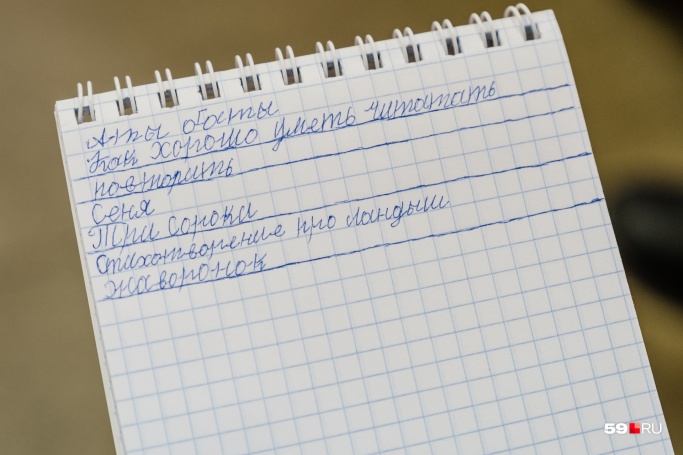 Аты баты
Как хорошо уметь читатать
повторить
Сеня
Три сороки
стихотворение про ландыш
жаворонок
59.RU